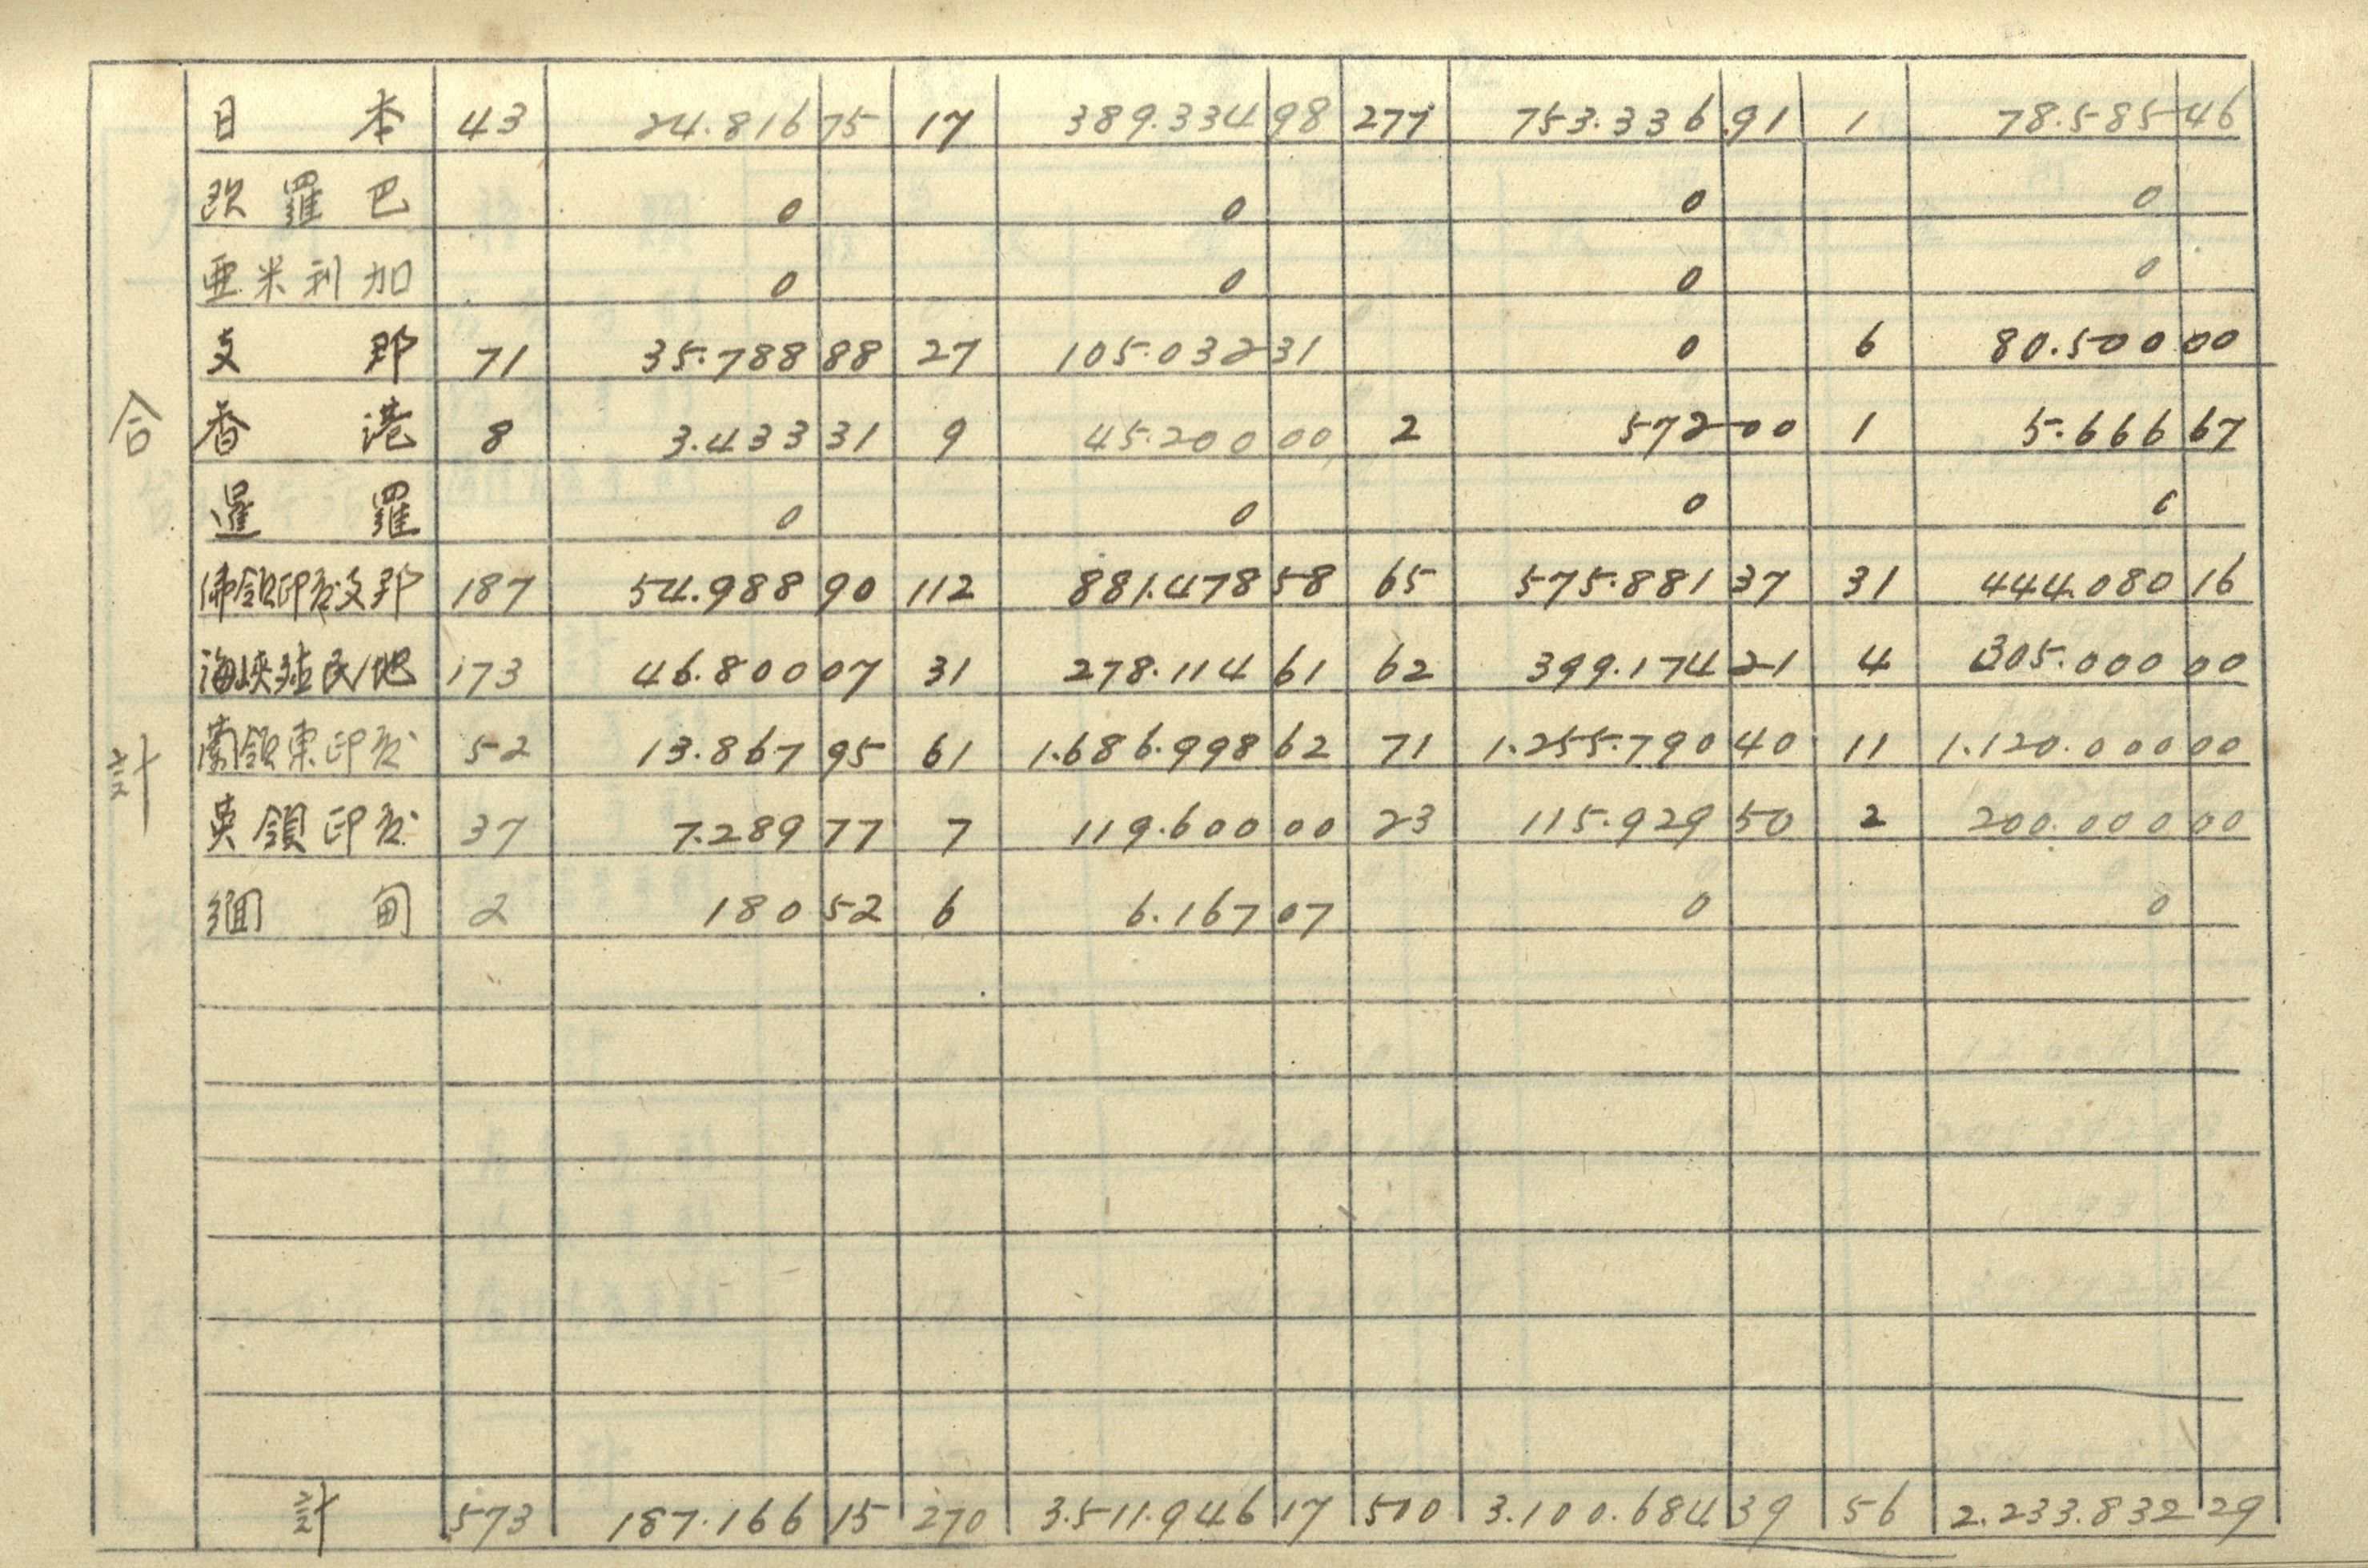 合計
日本 43 24.816 75 17 389.334 98 277 753.336 91 1 78.585 46
欧羅巴 0 0 0 0
亜米利加 0 0 0 0
支那 71 35.788 88 27 105.032 31 0 6 80.500 00
香港 8 3.433 31 9 45.200 00 2 572 00 1 5.666 67
暹羅 0 0 0 0
佛領印度支那 187 54.988 90 112 881.478 58 65 575.881 37 31 444.080 16
海峡殖民地 173 46.800 07 31 278.114 61 62 399.174 21 4 305.000 00
蘭領東印度 52 13.867 95 61 1.686.998 62 71 1.255.790 40 11 1.120.000 00
英領印度 37 7.289 77 7 119.600 00 23 115.929 50 2 200.000 00
緬甸 2 180 52 6 6.167 07 0 0
計 573 187.166 15 270 3.511.946 17 500 3.100.684 39 56 2.233.832 29